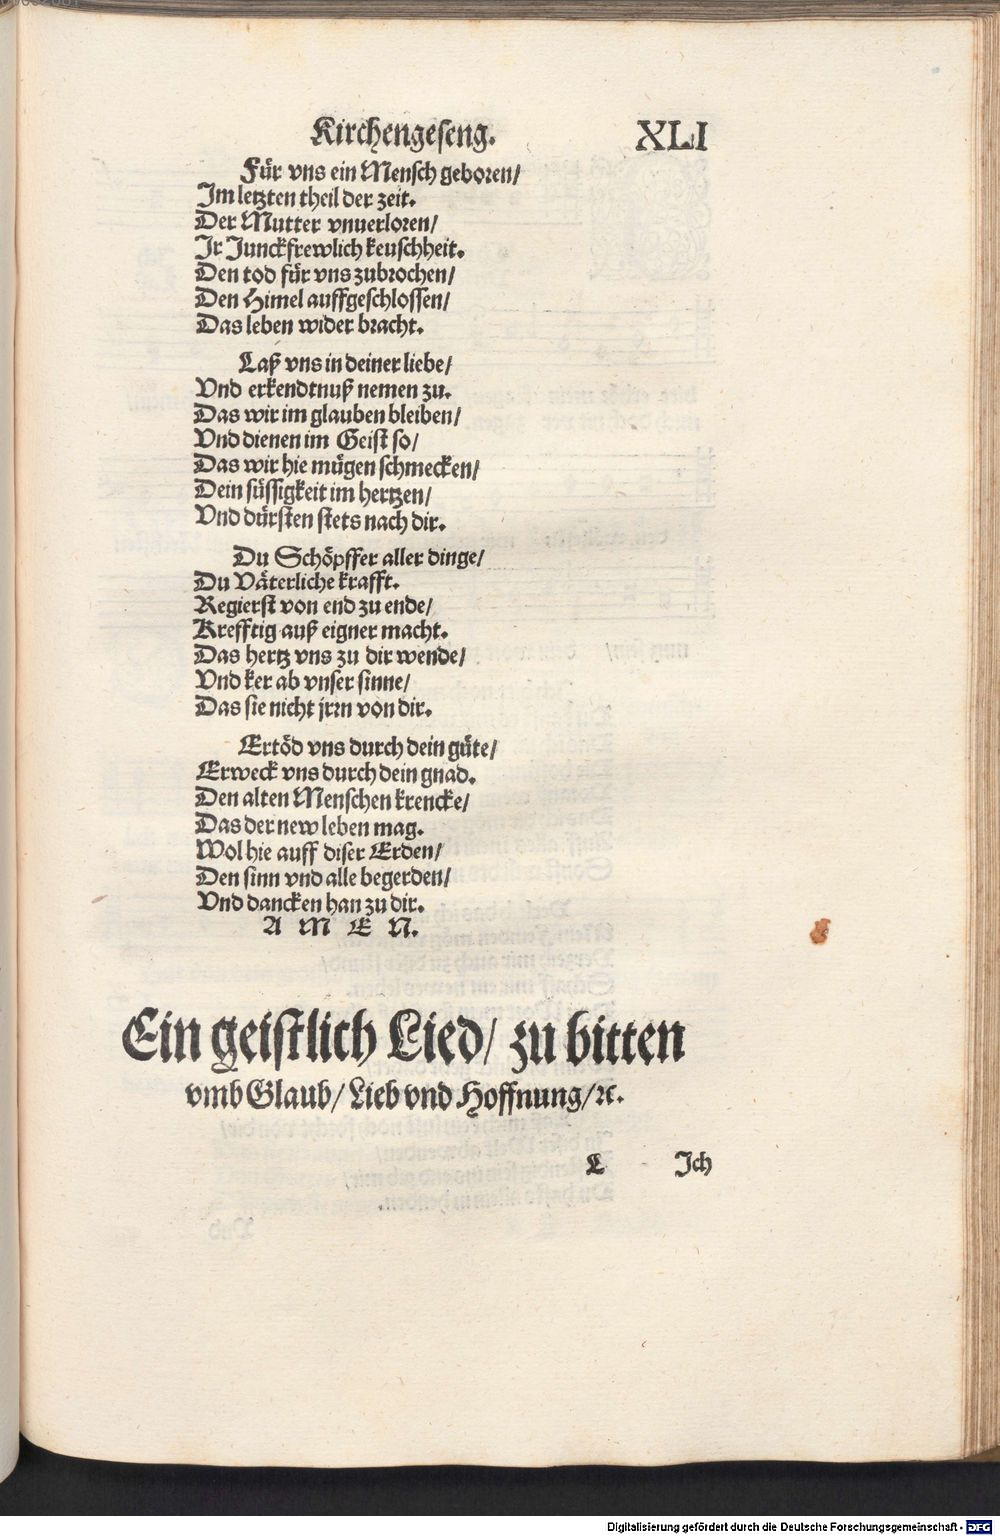 Kirchengeseng. XLI
Für vns ein Mensch geboren/
Im letzten theil der zeit.
Der Mutter vnuerloren/
Ir Junckfrewlich keuschheit.
Den tod für vns zubrochen/
Den Himel auffgeschlossen/
Das leben wider bracht.
Laß vns in deiner liebe/
Vnd erkendtnuß nemen zu.
Das wir im glauben bleiben/
Vnd dienen im Geist so/
Das wir hie mügen schmecken/
Dein süssigkeit im hertzen/
Vnd dürsten stets nach dir.
Du Schöpffer aller dinge/
Du Väterliche krafft.
Regierst von end zu ende/
Krefftig auß eigner macht.
Das hertz vns zu dir wende/
Vnd ker ab vnser sinne/
Das sie nicht jrrn von dir.
Ertöd vns durch dein güte/
Erweck vns durch dein gnad.
Den alten Menschen krencke/
Das der new leben mag.
Wol hie auff diser Erden/
Den sinn vnd alle begerden/
Vnd dancken han zu dir.
A M E N.
Ein geistlich Lied/ zu bitten
vmb Glaub/ Lieb vnd Hoffnung/ꝛc.
L Ich
Digitalisierung gefördert durch die Deutsche Forschungsgemeinschaft - DFG